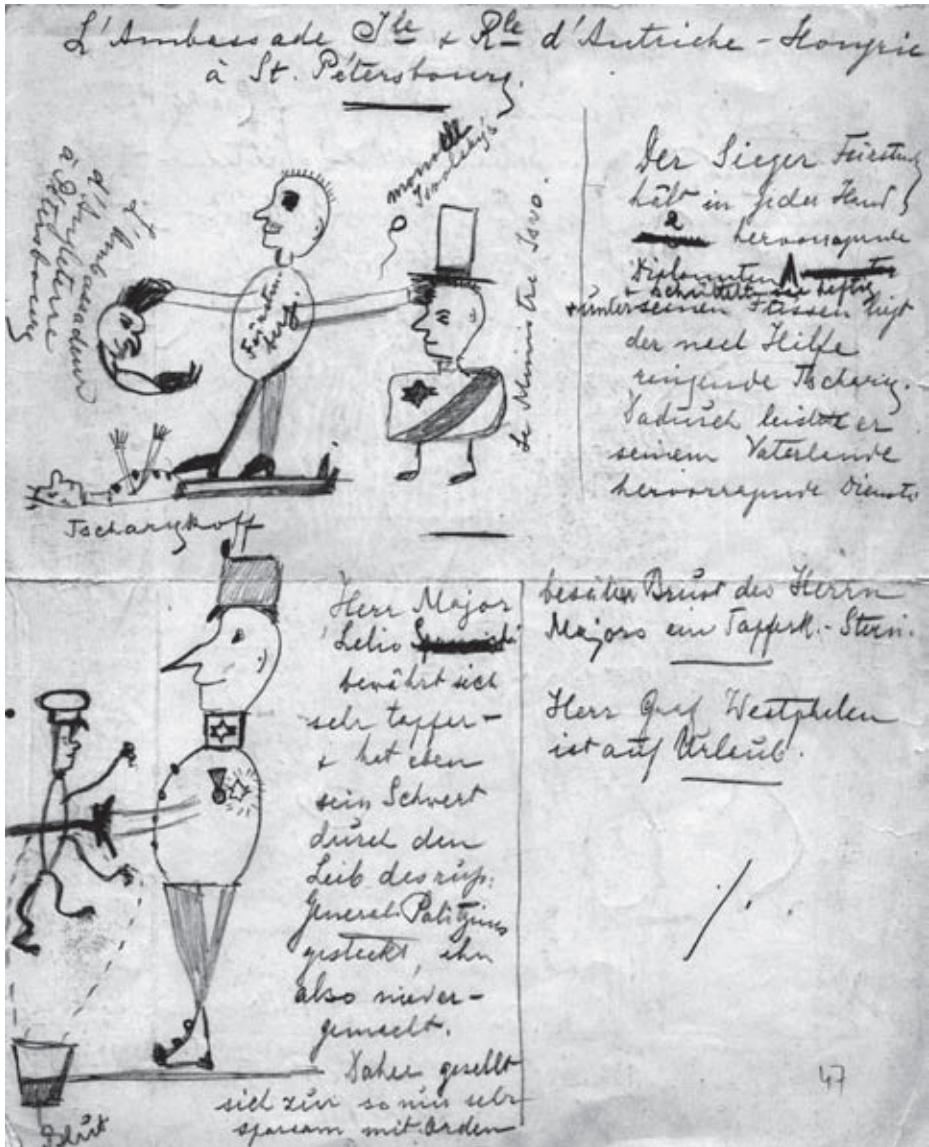 L'Ambassade Ile & Rle d'Autriche-Hongrie
à St. Pétersbourg.
L'Ambassadeur
d'Angleterre
à Pétersbourg
Fürsten
berg
monocle
Iswolsky's
Le Ministre Iswo.
Tscharykoff
Der Sieger Fürstenb
hält in jeder Hand
2 hervorragende
Diplomaten
& schüttelt sie heftig
& unter seinen Füssen liegt
der nach Hilfe
ringende Tscharyk.
Dadurch leistet er
seinem Vaterlande
hervorragende Dienste
Herr Major
Lelio
bewährt sich
sehr tapfer -
& hat eben
sein Schwert
durch den
Leib des russ.
General Palitzins
gesteckt, ihn
also nieder-
gemacht.
Daher gesellt
sich zur so nur sehr
sparsam mit Orden
Blut
besäten Brust des Herrn
Majors ein Tapferk.-Stern.
Herr Graf Westphalen
ist auf Urlaub.
47